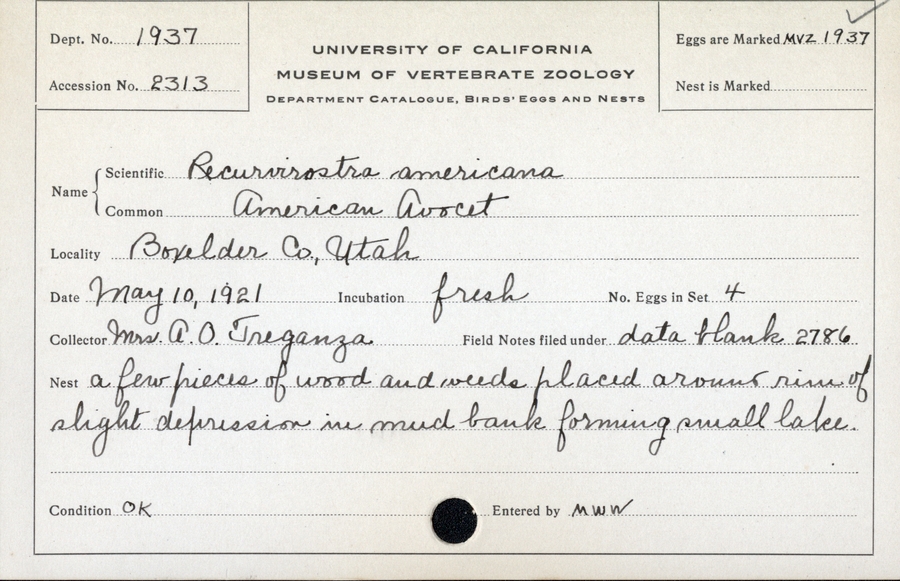 Dept. No. 1937
Accession No. 2313
UNIVERSITY OF CALIFORNIA
MUSEUM OF VERTEBRATE ZOOLOGY
DEPARTMENT CATALOGUE, BIRDS' EGGS AND NESTS
Eggs are Marked MVZ 1937
Nest is Marked
Name
Scientific Recurvirostra americana
Common American Avocet
Locality Boxelder Co., Utah
Date May 10, 1921 Incubation fresh No. Eggs in Set 4
Collector Mrs. A. O. Treganza Field Notes filed under data blank 2786
Nest a few pieces of wood and weeds placed around rim of
slight depression in mud bank forming small lake.
Condition OK Entered by MWW